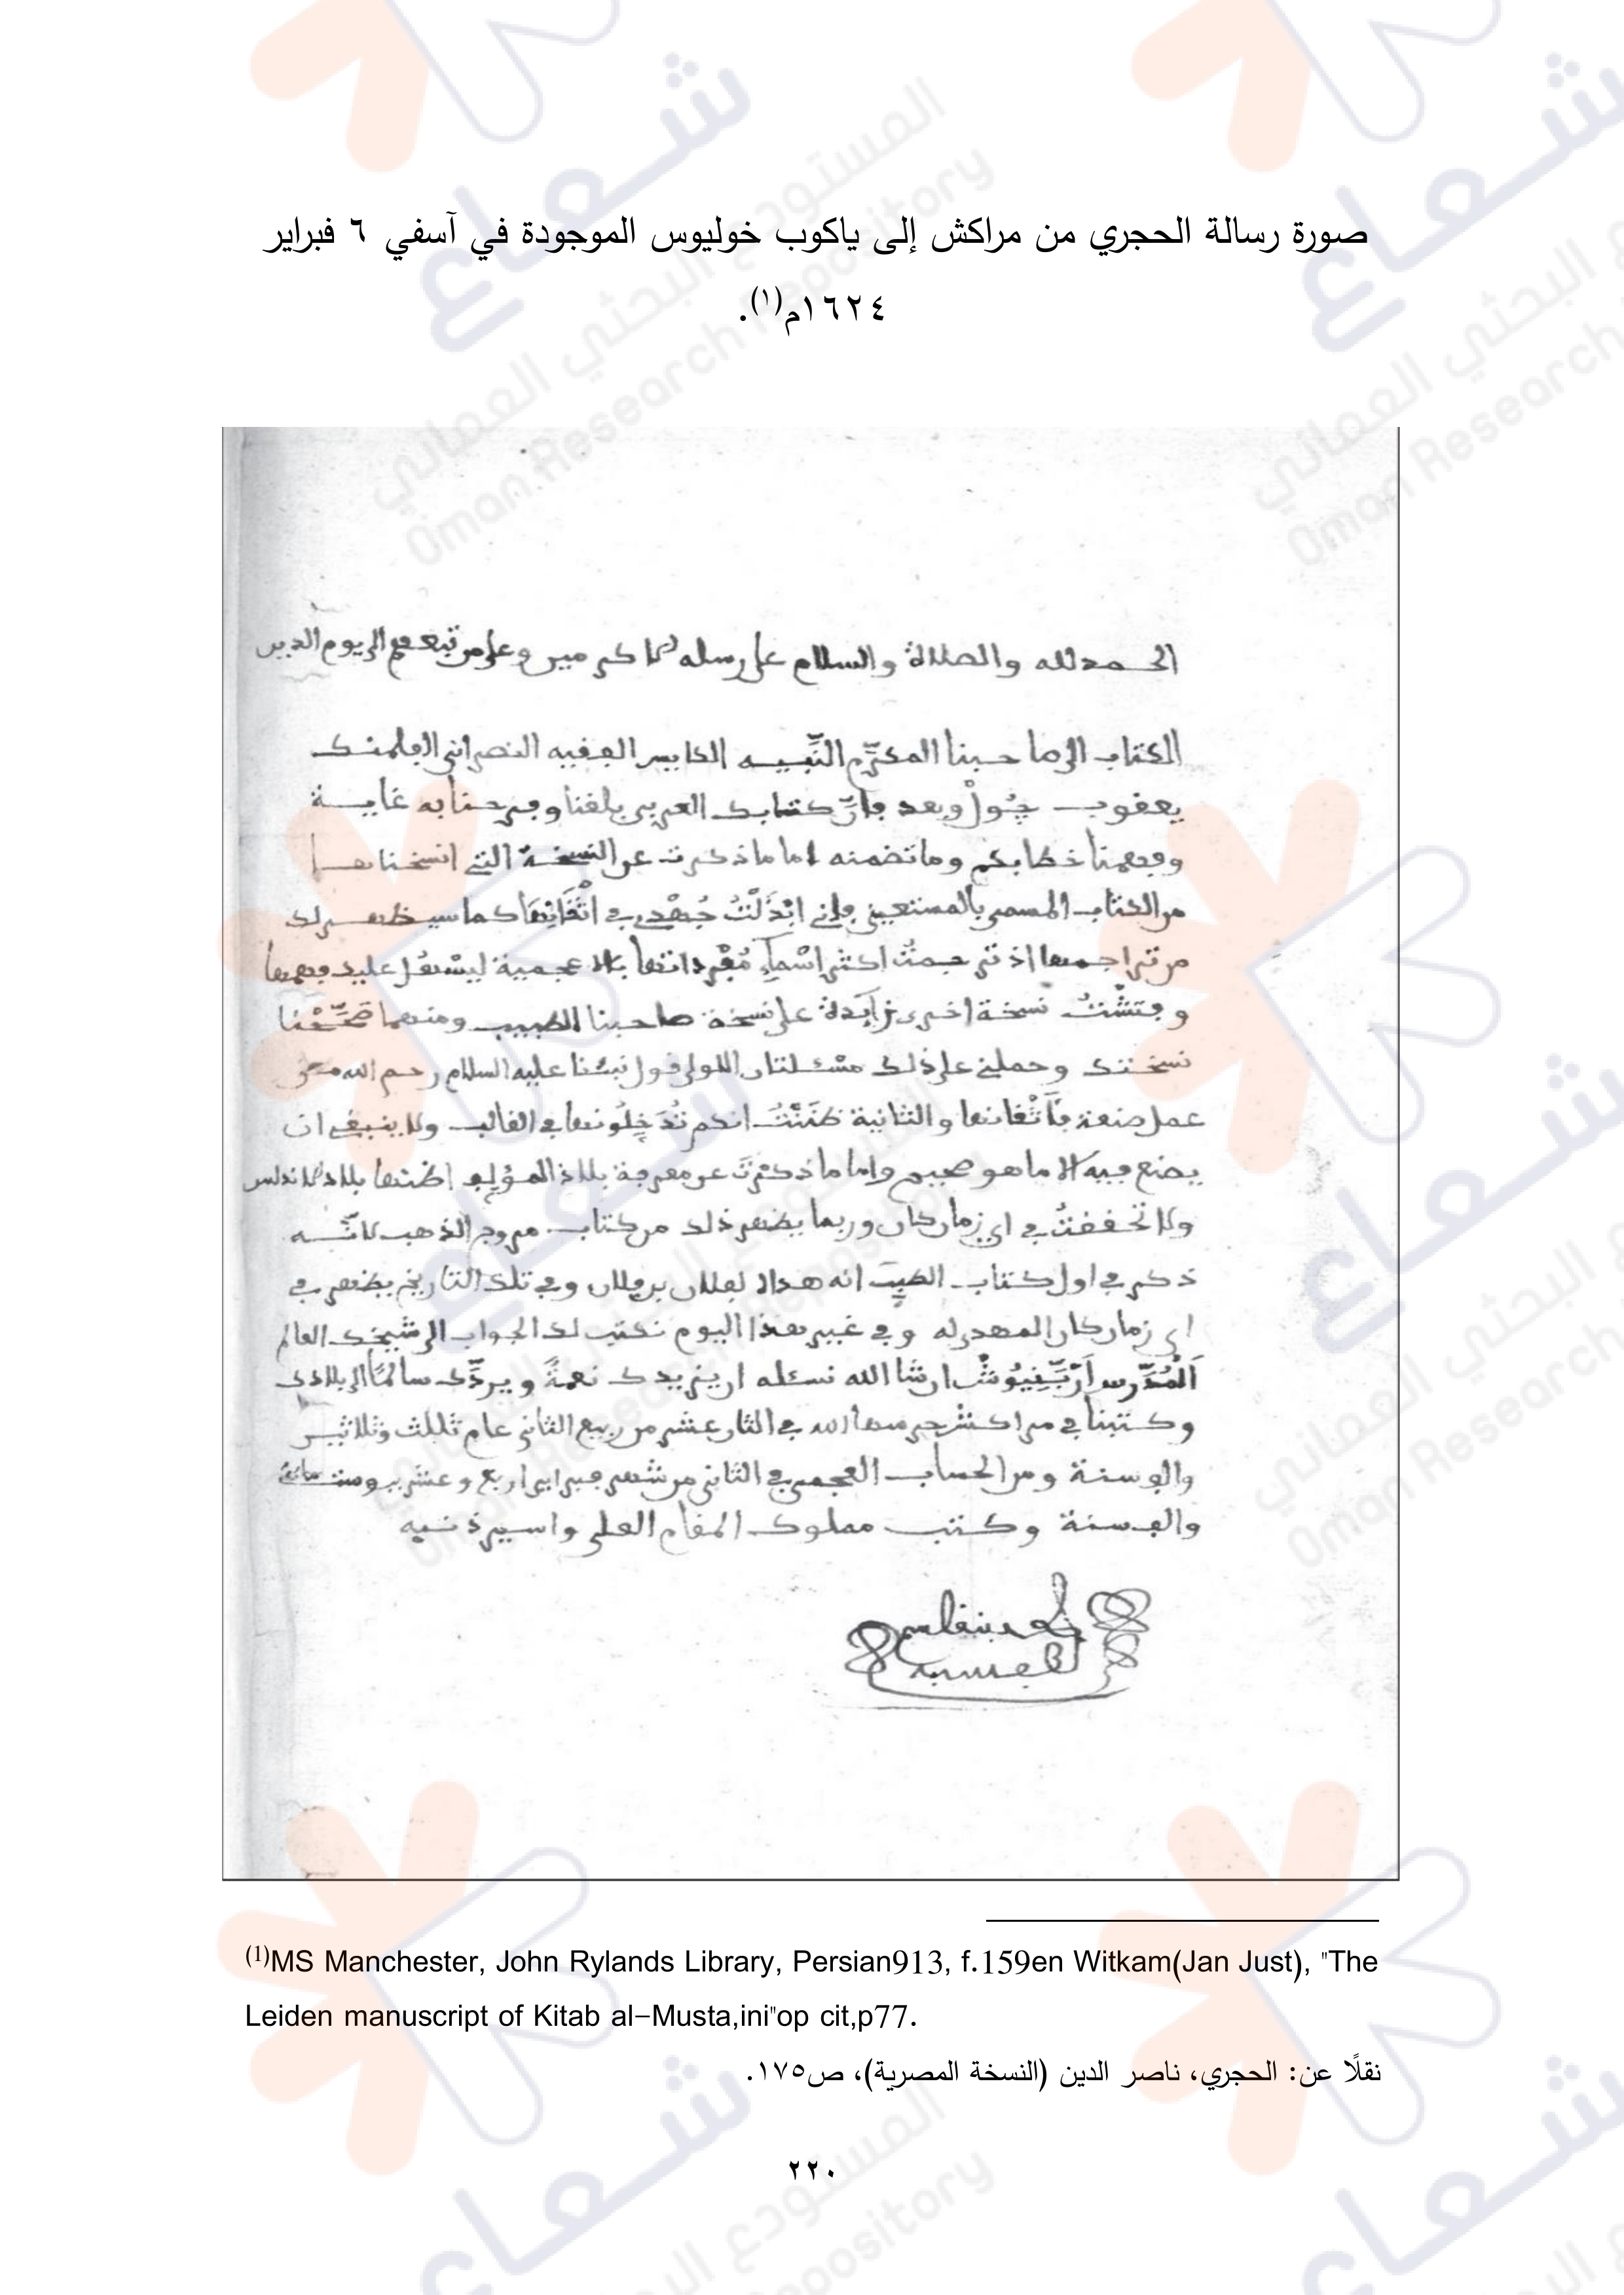 صورة رسالة الحجري من مراكش إلى ياكوب خوليوس الموجودة في آسفي ٦ فبراير
١٦٢٤م(١).
الحمد لله والصلاة والسلام على رسله الاكرمين وعلى من تبعهم الى يوم الدين
الكتاب الى صاحبنا المكرّم النّبيه الكايس الفقيه النصراني الافلمنك
يعقوب جُول وبعد فإنّ كتابك العربي بلغنا وفرحنا به غاية
وفهمنا خطابكم وما تضمنه اما ما ذكرت عن النسخة التي انسخنا لها
من الكتاب المسمى بالمستعيني فإني ابْذَلْتُ جُهْدي في اتْقَانِهَا كما سيظهر لك
من تراجمها اذ ترجمتُ اكثر اسْماء مُفْرداتها بالاعجمية ليسْهُل عليك فهمها
وفتشْتُ نسخة اخرى زايدة على نسخة صاحبنا الطبيب ومنهما صَحّحْنا
نسختك وحملني على ذلك مسْئلتان الاولى قول نبيّنا عليه السلام رحم الله من
عمل صنعة فأتْقانها والثانية ظَنَنْتُ انكم تُدَخِلُونها في القالب ولا ينبغي ان
يصنع فيه الا ما هو صحيح واما ما ذكرْتَ عن معرفة بلاد المؤلف اظنها بلاد الاندلس
ولا تحققتُ في اي زمان كان وربما يظهر ذلك من كتاب مروج الذهب لانّه
ذكر في اول كتاب الطبّ انه هداه لفلان بن فلان وفي تلك التاريخ يظهر في
اي زمان كان المهدى له وفي غير هذا اليوم نكتب لك الجواب الى شيخك العالم
الْمُدَرّس أرْبِّنِيُوشْ ان شا الله نسئله ان يزيدك نعمةً ويردّك سالمًا الى بلادك
وكتبنا في مراكش حرسها الله في الثان عشر من ربيع الثاني عام ثلاث وثلاثين
والف سنة ومن الحساب العجمي في الثاني من شهر فبراير اربع وعشرين وست مائة
والف سنة وكتب مملوك المقام العلي واسير ذنبه
احمد بن قاسم
(1)MS Manchester, John Rylands Library, Persian913, f.159en Witkam(Jan Just), "The
Leiden manuscript of Kitab al-Musta,ini"op cit,p77.
نقلًا عن: الحجري، ناصر الدين (النسخة المصرية)، ص١٧٥.
٢٢٠
شعاع
المستودع البحثي العماني
Oman Research Repository